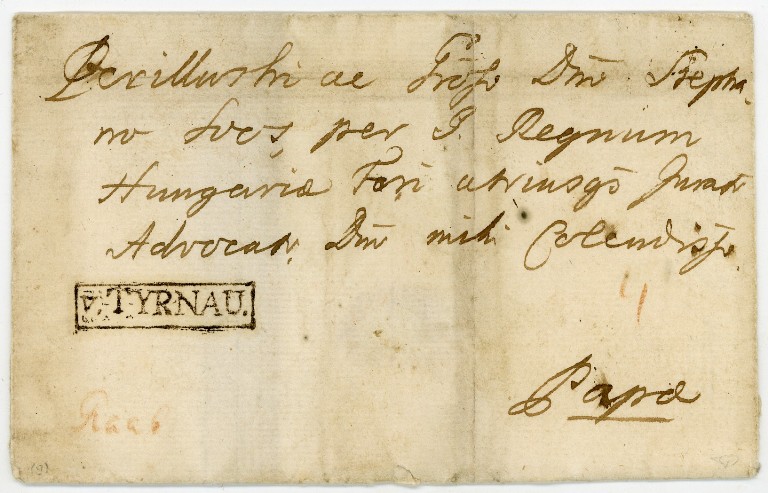 Perillustri ac Gróso Dno Stepha
no Soós, per I. Regnum
Hungariæ Fori utriusqs Jurato
Advocato, Dno mihi Colendisso
V. TYRNAU.
4
Raab
Papæ